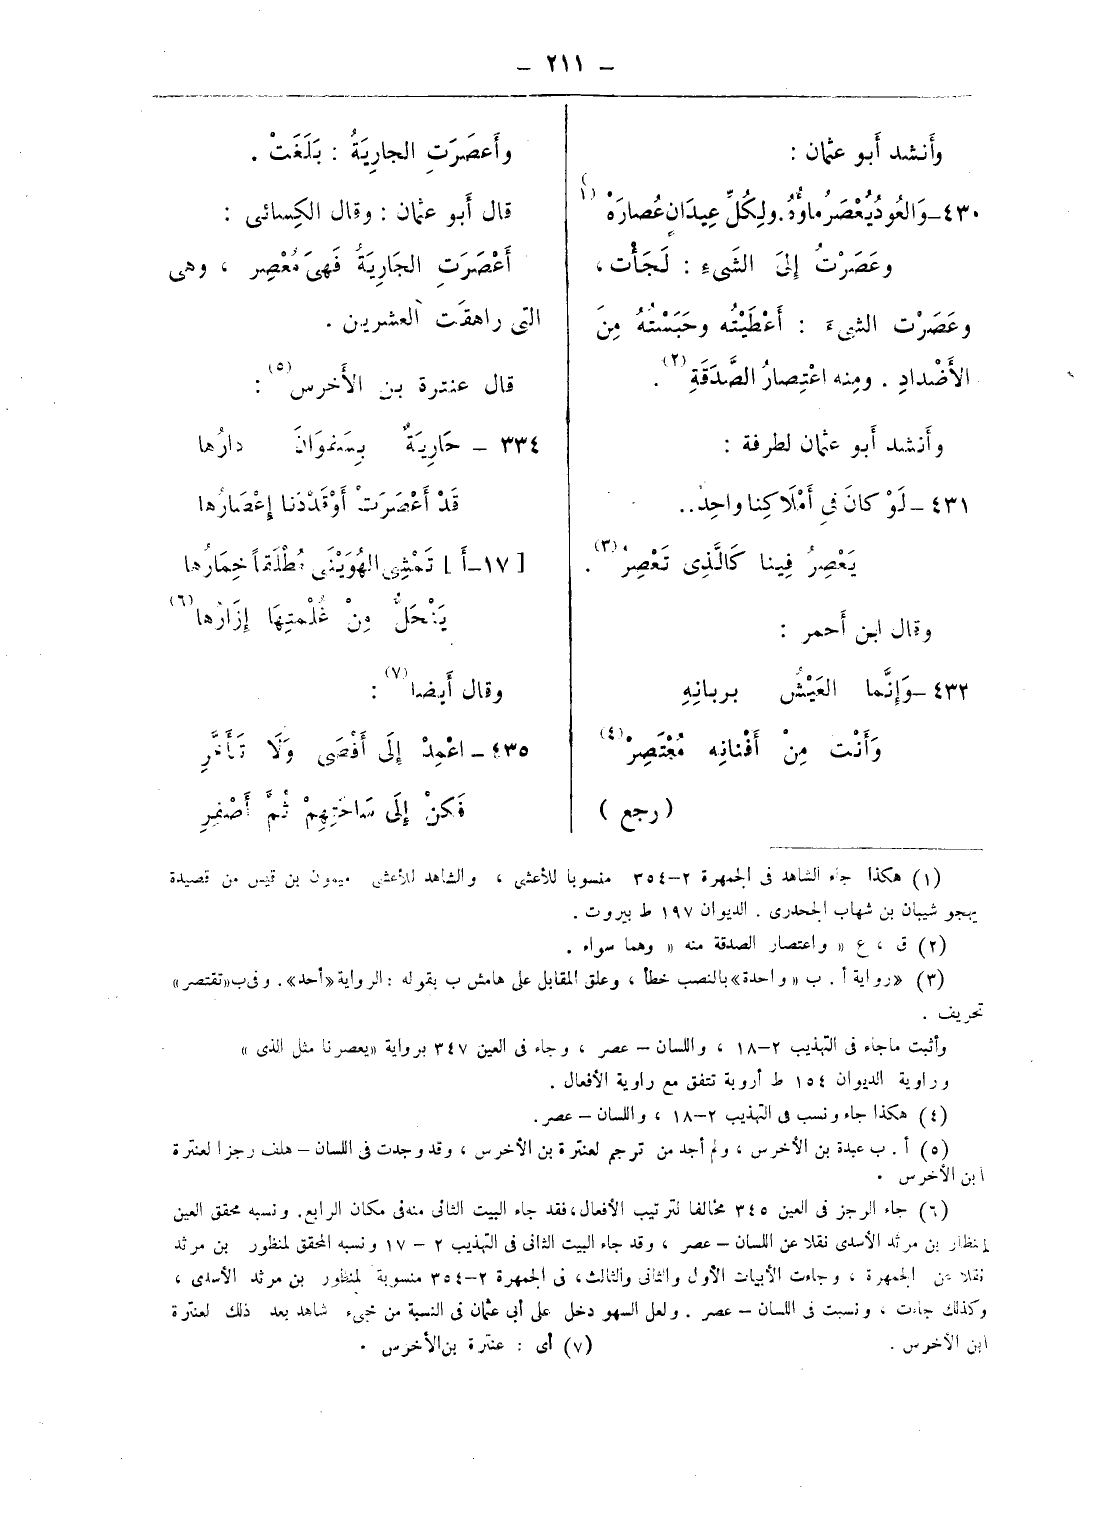 – ٢١١ –
وأَنشد أَبو عثمان :
٤٣٠–وَالعُودُ يُعْصَرُ ماؤُهُ . ولِكُلِّ عِيدَانٍ عُصارَهْ (١)
وعَصَرْتُ إِلىَ الشَّىءِ : لَجَأْت ،
وعَصَرْت الشىءَ : أَعْطَيْتُه وحَبَسْتُهُ مِنَ
الأَضْدادِ . ومِنه اعْتِصارُ الصَّدَقَةِ (٢) .
وأَنشد أَبو عثمان لطرفة :
٤٣١–لَوْ كانَ فِى أَمْلَاكِنا واحِدٌ ..
يَعْصِرُ فِينا كَالَّذِى تَعْصِرُ (٣) .
وقال ابن أَحمر :
٤٣٢–وَإِنَّما العَيْشُ بربانِهِ
وَأَنْت مِنْ أَفْنانِه مُعْتَصِرْ (٤)
( رجع )
وأَعصَرَتِ الجارِيَةُ : بَلَغَتْ .
قال أَبو عثمان : وقال الكِسائى :
أَعْصَرَتِ الجَارِيَةُ فَهىَ مُعْصِر ، وهى
التى راهقَت العشرين .
قال عنترة بن الأَخرس (٥) :
٣٣٤ – جَارِيَةٌ بِسَفَوَانَ دارُها
قَدْ أَعْصَرَتْ أَوْقَدْدَنا إِعْصَارُها
[ ١٧–أَ ] تَمْشِى الهُوَيْنَى مُطْلَقاً خِمَارُها
يَنْحَلُّ مِنْ غُلْمتِهَا إِزَارُها (٦)
وقال أَيضا (٧) :
٤٣٥ – اعْمِدْ إِلَى أَفْصَى وَلَا تَأَخَّرِ
فَكنْ إِلَى سَاحَتِهِمْ ثُمَّ أَصْفِرِ
(١) هكذا جاء الشاهد فى الجمهرة ٢–٣٥٤ منسوبا للأعشى ، والشاهد للأعشى ميمون بن قيس من قصيدة
يهجو شيبان بن شهاب الجحدرى . الديوان ١٩٧ ط بيروت .
(٢) ق ، ع « واعتصار الصدقة منه » وهما سواء .
(٣) «رواية أ . ب «واحدة» بالنصب خطأ ، وعلق المقابل على هامش ب بقوله : الرواية «أحد» . وفى ب «تقتصر»
تحريف .
وأثبت ماجاء فى التهذيب ٢–١٨ ، واللسان – عصر ، وجاء فى العين ٣٤٧ برواية «يعصرنا مثل الذى »
وراوية الديوان ١٥٤ ط أروبة تتفق مع راوية الأفعال .
(٤) هكذا جاء ونسب فى التهذيب ٢–١٨ ، واللسان – عصر .
(٥) أ . ب عبدة بن الأخرس ، ولم أجد من ترجم لعنترة بن الأخرس ، وقد وجدت فى اللسان – هلف رجزا لعنترة
ابن الأخرس .
(٦) جاء الرجز فى العين ٣٤٥ مخالفا لترتيب الأفعال ، فقد جاء البيت الثانى منه فى مكان الرابع . ونسبه محقق العين
لمنظار بن مرثد الأسدى نقلا عن اللسان – عصر ، وقد جاء البيت الثانى فى التهذيب ٢ – ١٧ ونسبه المحقق لمنظور بن مرثد
نقلا عن الجمهرة ، وجاءت الأبيات الأول والثانى والثالث، فى الجمهرة ٢–٣٥٤ منسوبة لمنظور بن مرثد الأسدى ،
وكذلك جاءت ، ونسبت فى اللسان – عصر . ولعل السهو دخل على أبى عثمان فى النسبة من مجىء شاهد بعد ذلك لعنترة
ابن الأخرس .
(٧) أى : عنترة بن الأخرس .